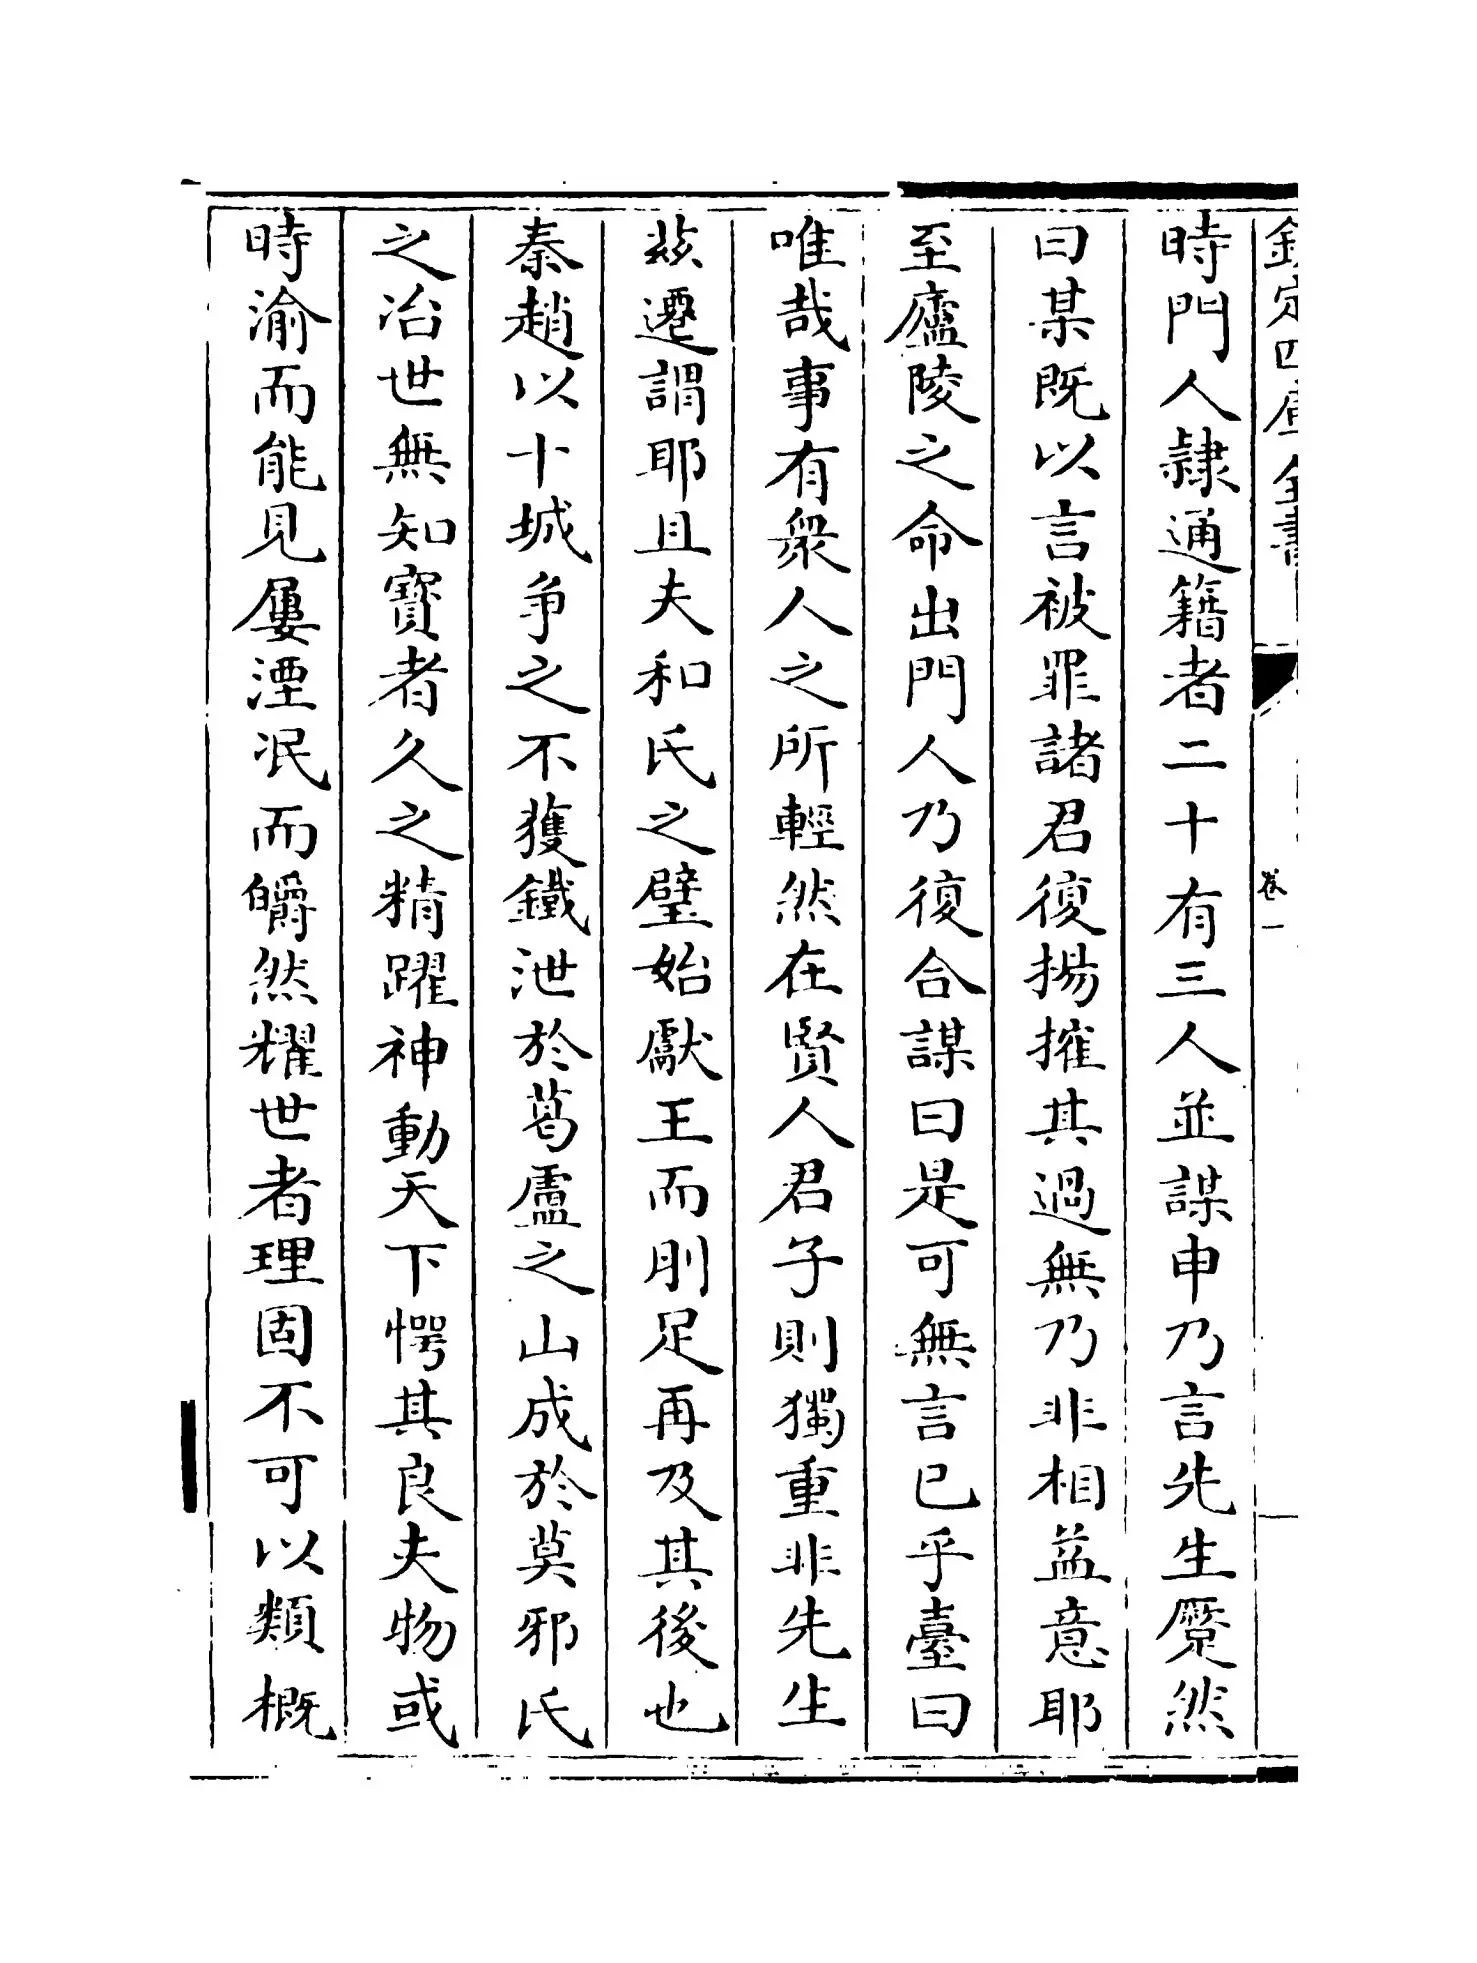 欽定四庫全書
卷一
時門人隸通籍者二十有三人並謀申乃言先生蹙然
曰某既以言被罪諸君復揚搉其過無乃非相益意耶
至廬陵之命出門人乃復合謀曰是可無言已乎臺曰
唯哉事有衆人之所輕然在賢人君子則獨重非先生
兹遷謂耶且夫和氏之璧始獻王而刖足再及其後也
秦趙以十城争之不獲鐵泄於葛盧之山成於莫邪氏
之冶世無知寳者久之精躍神動天下愕其良夫物或
時渝而能見屢湮泯而皭然耀世者理固不可以類概